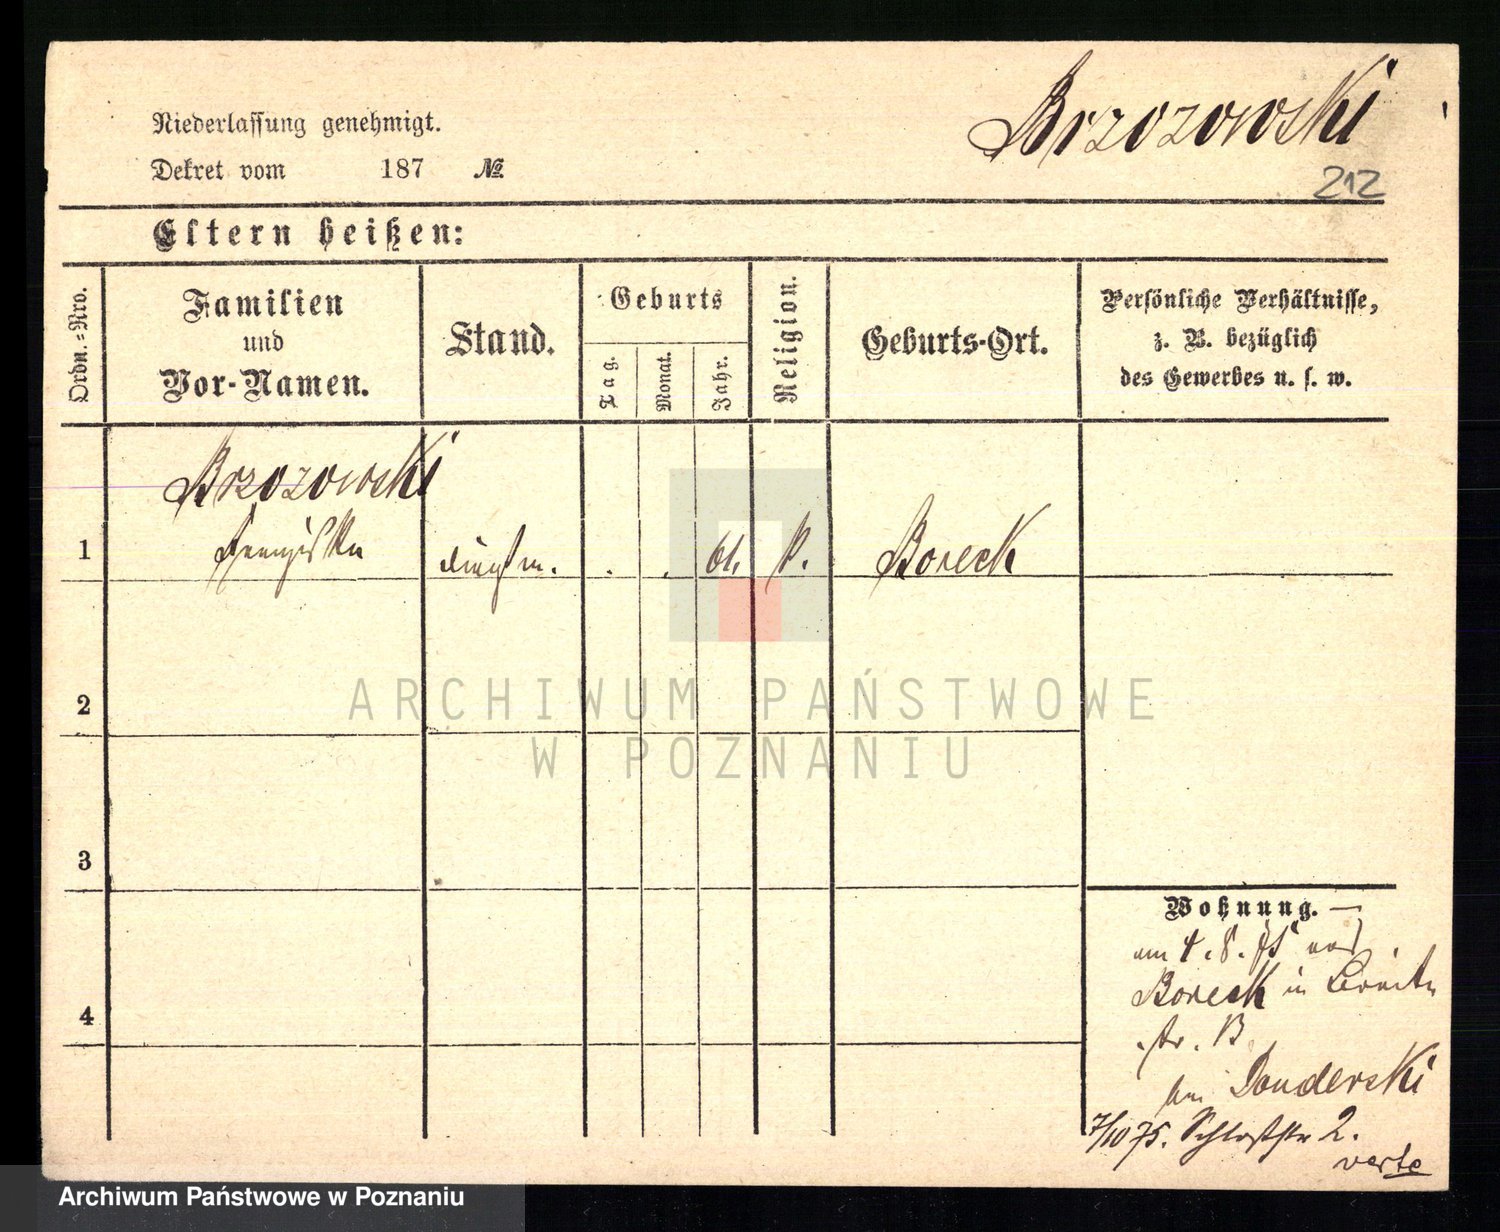 Niederlassung genehmigt.
Dekret vom 187 №
Brzozowski
212
Eltern heißen:
Ordn.=Nro.
Familien
und
Vor-Namen.
Stand.
Geburts
Tag.
Monat.
Jahr.
Religion.
Geburts-Ort.
Persönliche Verhältnisse,
z. B. bezüglich
des Gewerbes u. s. w.
Brzozowski
1 Franziska . . 61. k. Boreck
2
3
4
Wohnung.
am 4.8.75 aus
Boreck in Breite
str.
bei Danderski
7/10 75. Schloßstr 2.
verte
ARCHIWUM PAŃSTWOWE
W POZNANIU
Archiwum Państwowe w Poznaniu